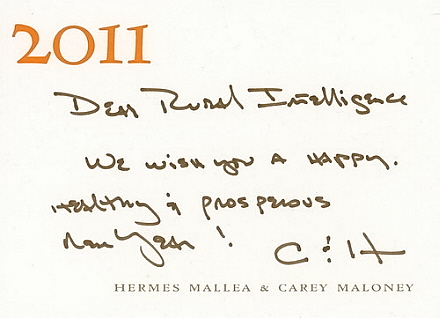 2011
Dear Rural Intelligence
We wish you a happy.
Healthy & prosperous
New Year!
C & H
HERMES MALLEA & CAREY MALONEY